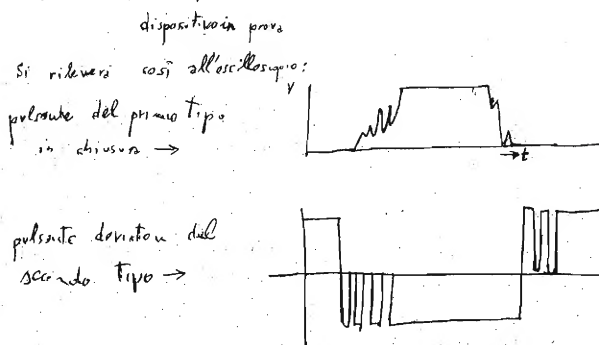 dispositivo in prova
Si rileverà così all'oscilloscopio:
V
pulsante del primo tipo
in chiusura →
→ t
pulsante deviatore del
secondo tipo →